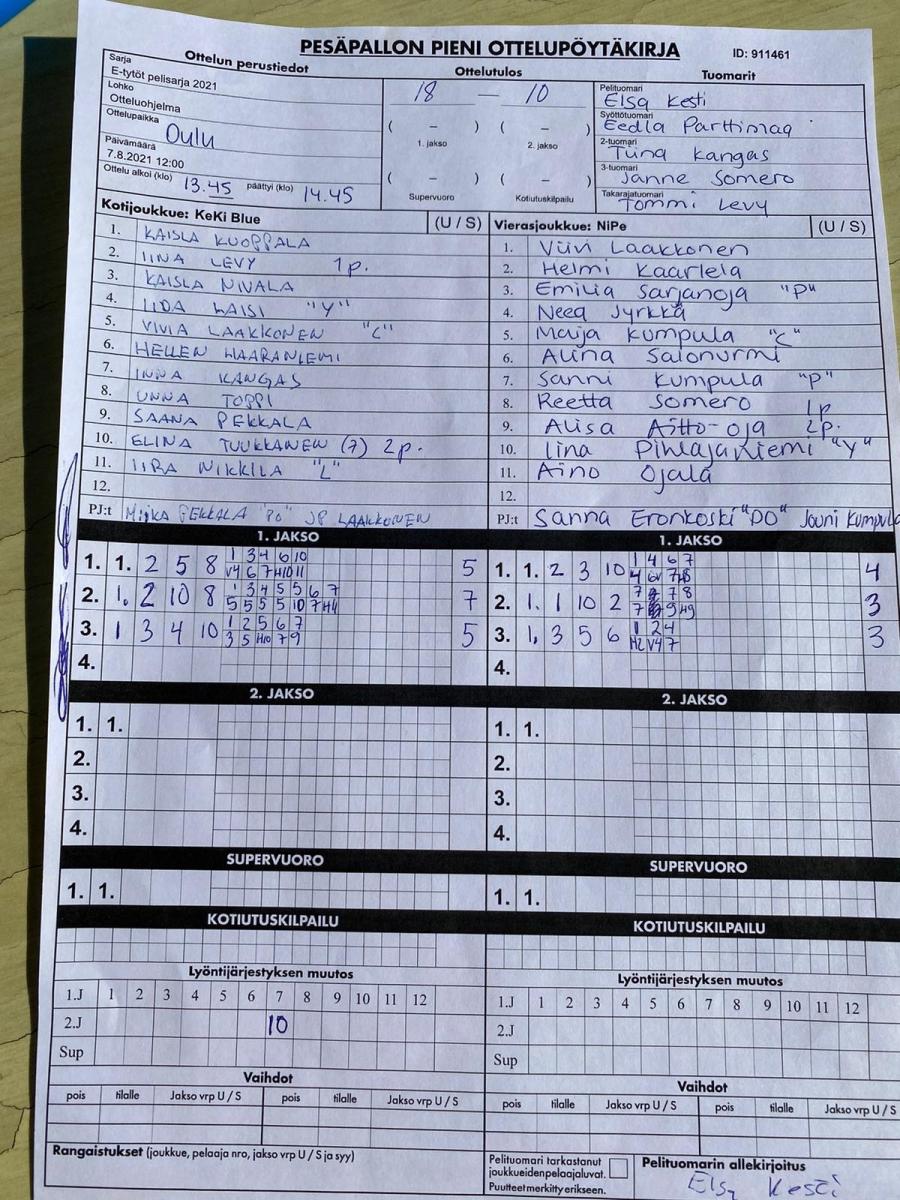 PESÄPALLON PIENI OTTELUPÖYTÄKIRJA
ID: 911461
Ottelun perustiedot
Sarja
E-tytöt pelisarja 2021
Lohko
Otteluohjelma
Ottelupaikka
Oulu
Päivämäärä
7.8.2021 12:00
Ottelu alkoi (klo) 13.45 päättyi (klo) 14.45
Ottelutulos
18 — 10
( – ) ( – )
1. jakso 2. jakso
( – ) ( – )
Supervuoro Kotiutuskilpailu
Tuomarit
Pelituomari
Elsa Kesti
Syöttötuomari
Eedla Parttimaa
2-tuomari
Tiina Kangas
3-tuomari
Janne Somero
Takarajatuomari
Tommi Levy
Kotijoukkue: KeKi Blue (U / S)
1. KAISLA KUOPPALA
2. IINA LEVY 1p.
3. KAISLA NIVALA
4. IIDA LAISI "Y"
5. VIVIA LAAKKONEN "L"
6. HELLEN HAARANIEMI
7. INNA KANGAS
8. UNNA TOPPI
9. SAANA PEKKALA
10. ELINA TUUKKANEN (7) 2p.
11. IIRA NIKKILÄ "L"
12.
PJ:t MIIKA PEKKALA "PO" JP LAAKKONEN
Vierasjoukkue: NiPe (U / S)
1. Viivi Laakkonen
2. Helmi Kaarlela
3. Emilia Sarjanoja "P"
4. Neea Jyrkkä
5. Maija Kumpula "L"
6. Alina Salonurmi
7. Sanni Kumpula "P"
8. Reetta Somero 1p
9. Alisa Aitto-oja 2p.
10. Iina Pihlajaniemi "Y"
11. Aino Ojala
12.
PJ:t Sanna Eronkoski "PO" Jouni Kumpula
1. JAKSO
1. 1. 2 5 8 1 3 4 6 10 5
V4 6 7 H10 11
2. 1. 2 10 8 1 3 4 5 5 6 7 7
5 5 5 5 10 7 H4
3. 1 3 4 10 1 2 5 6 7 5
3 5 H10 7 9
4.
2. JAKSO
1. 1.
2.
3.
4.
SUPERVUORO
1. 1.
KOTIUTUSKILPAILU
Lyöntijärjestyksen muutos
1.J 1 2 3 4 5 6 7 8 9 10 11 12
2.J 10
Sup
Vaihdot
pois tilalle Jakso vrp U / S pois tilalle Jakso vrp U / S
1. JAKSO
1. 1. 2 3 10 1 4 6 7 4
4 6V 7 H8
2. 1. 1 10 2 7 7 8 3
7 9 H9
3. 1. 3 5 6 1 2 4 3
H2 V4 7
4.
2. JAKSO
1. 1.
2.
3.
4.
SUPERVUORO
1. 1.
KOTIUTUSKILPAILU
Lyöntijärjestyksen muutos
1.J 1 2 3 4 5 6 7 8 9 10 11 12
2.J
Sup
Vaihdot
pois tilalle Jakso vrp U / S pois tilalle Jakso vrp U / S
Rangaistukset (joukkue, pelaaja nro, jakso vrp U / S ja syy)
Pelituomari tarkastanut
joukkueiden pelaajaluvat.
Puutteet merkitty erikseen.
Pelituomarin allekirjoitus
Elsa Kesti